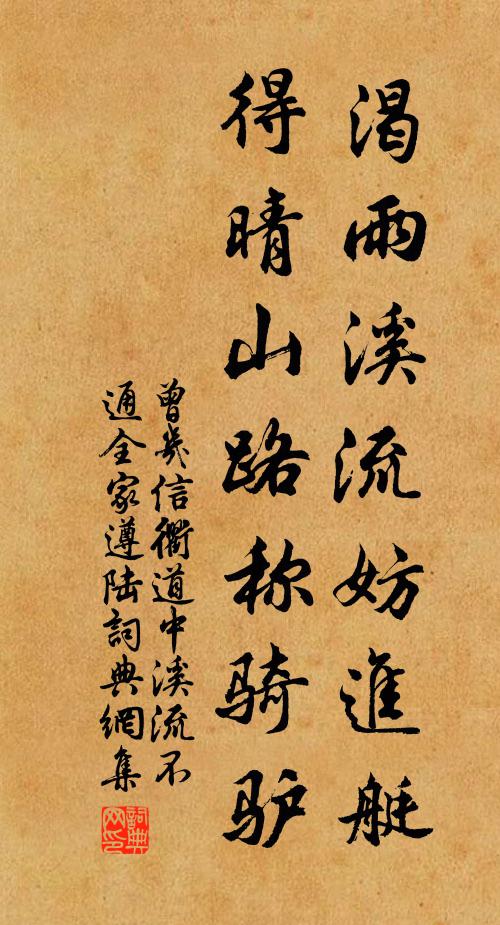 渴雨溪流妨進艇
得晴山路称骑驴
曾幾信衢道中溪流不
通全家遵陆詞典網集
詞典网印